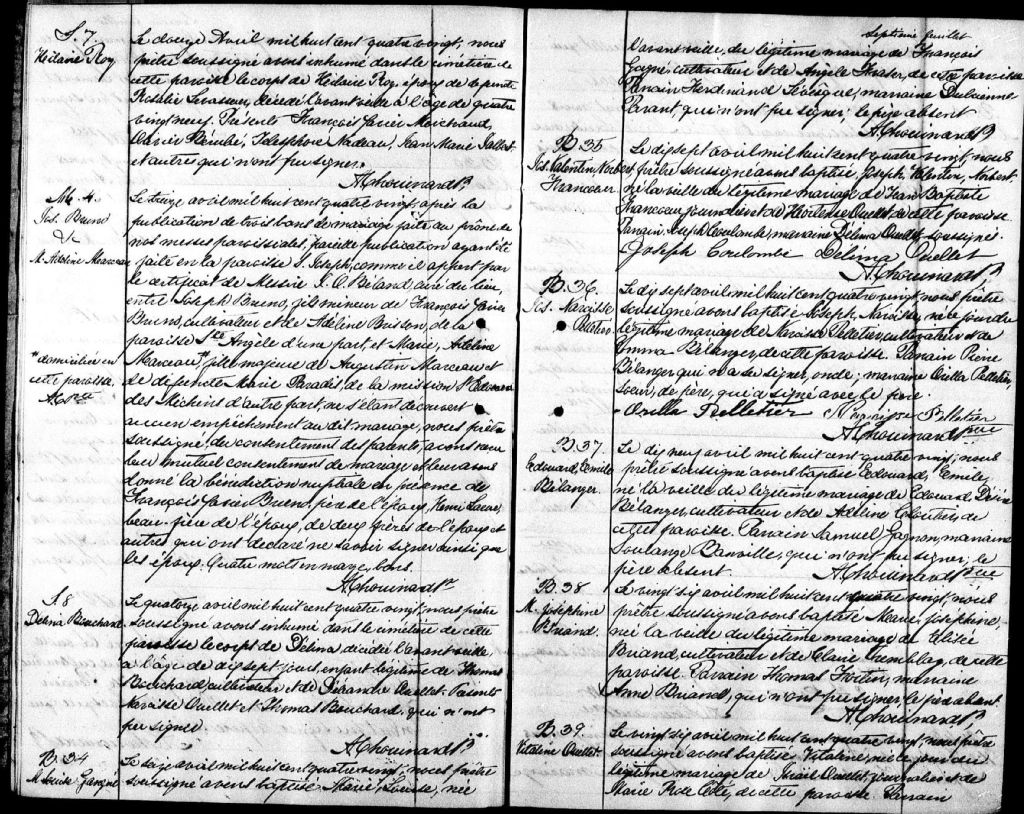 S. 7.
Hilaire Roy
Le douze Avril mil huit cent quatre vingt, nous
prêtre soussigné avons inhumé dans le cimetière de
cette paroisse le corps de Hilaire Roy, époux de defunte
Rosalie Levasseur, décédé l'avant veille à l'age de quatre
vingt neuf. Présents François Xavier Marchand,
Xavier Bérubé, Telesphore Nadeau, Jean Marie Jalbert
et autres qui n'ont pu signer.
A Chouinard Ptr
M. 4.
Jos. Bruno
&c
M. Adeline Marceau
Le treize avril mil huit cent quatre vingt, après la
publication de trois bans de mariage faite au prône de
nos messes paroissiales, pareille publication ayant été
faite en la paroisse S. Joseph, comme il appert par
le certificat de Messire J. O. Béland, curé du lieu,
entre Joseph Bruno, fils mineur de François Xavier
Bruno, cultivateur et de Adeline Buisson, de la
paroisse Ste Angèle d'une part, et Marie, Adeline
Marceau, fille majeure de Augustin Marceau et
de defuncte Marie Paradis, de la mission St Edouard
des Méchins d'autre part, ne s'étant découvert
aucun empêchement au dit mariage, nous prêtre
soussigné, du consentement des parents, avons reçu
leur mutuel consentement de mariage et leur avons
donné la bénédiction nuptiale en présence de
François Xavier Bruno, père de l'époux, Henri
beau-père de l'époux, de deux frères de l'époux et
autres qui ont déclaré ne savoir signer ainsi que
les époux. Quatre mots en marge, bons.
A Chouinard Ptr
"domiciliée en
cette paroisse.
A C Ptr
S. 8
Délina Bouchard
Le quatorze avril mil huit cent quatre vingt, nous prêtre
soussigné avons inhumé dans le cimetière de cette
paroisse le corps de Délima, décédée l'avant veille
à l'âge de dix sept jours, enfant légitime de Thomas
Bouchard, cultivateur et de Ouellet. Présents
Narcisse Ouellet et Thomas Bouchard qui n'ont
pu signer
A Chouinard Ptr
B. 34
M. Louise Gagné
Le seize avril mil huit cent quatre vingt, nous prêtre
soussigné avons baptisé Marie, Louise, née
Septième feuillet
l'avant veille, du légitime mariage de François
Gagné, cultivateur et de Angèle Fraser, de cette paroisse
Parrain Ferdinand Levesque, marraine Dulcienne
Parant, qui n'ont pu signer le père absent
A Chouinard Ptr
B. 35
Jos. Valentin, Norbert
Francoeur
Le dix sept avril mil huit cent quatre vingt, nous
prêtre soussigné avons baptisé, Joseph, Valentin, Norbert,
né la veille du légitime mariage de Jean Baptiste
Francoeur, journalier et de Ouellet de cette paroisse
Parrain, Joseph Coulombe, marraine Délima Ouellet, soussignés.
Joseph Coulombe Délima Ouellet
A Chouinard Ptr
B. 36.
Jos. Narcisse
Pelletier
Le dix sept avril mil huit cent quatre vingt, nous prêtre
soussigné avons baptisé Joseph, Narcisse, né ce jour du
légitime mariage de Narcisse Pelletier, cultivateur et de
Emma Bélanger, de cette paroisse. Parrain Pierre
Bélanger qui n'a su signer, oncle; marraine Ouella Pelletier,
soeur, de père, qui a signé avec le père.
Ouella Pelletier Narcisse Pelletier
A Chouinard Ptr
B. 37
Edouard, Emile
Bélanger.
Le dix neuf avril mil huit cent quatre vingt, nous
prêtre soussigné avons baptisé Edouard, Emile,
né la veille du légitime mariage de Edouard
Bélanger, cultivateur et de Adeline Cloutier, de
cette paroisse. Parrain Samuel Gagnon, marraine
Soulange Banville, qui n'ont pu signer, le
père absent.
A Chouinard Ptr
B. 38
M. Josephine
Briand.
Le vingt six avril mil huit cent quatre vingt, nous
prêtre soussigné avons baptisé Marie, Josephine,
née la veille du légitime mariage de Elisée
Briand, cultivateur et de Claire Tremblay, de cette
paroisse. Parrain Thomas, marraine
Anne Briand, qui n'ont pu signer, le père absent.
A Chouinard Ptr
B. 39.
Vitaline Ouellet.
Le vingt six avril mil huit cent quatre vingt, nous prêtre
soussigné avons baptisé Vitaline, née le jour du
légitime mariage de Ouellet, journalier et de
Marie Rose, de cette paroisse. Parrain